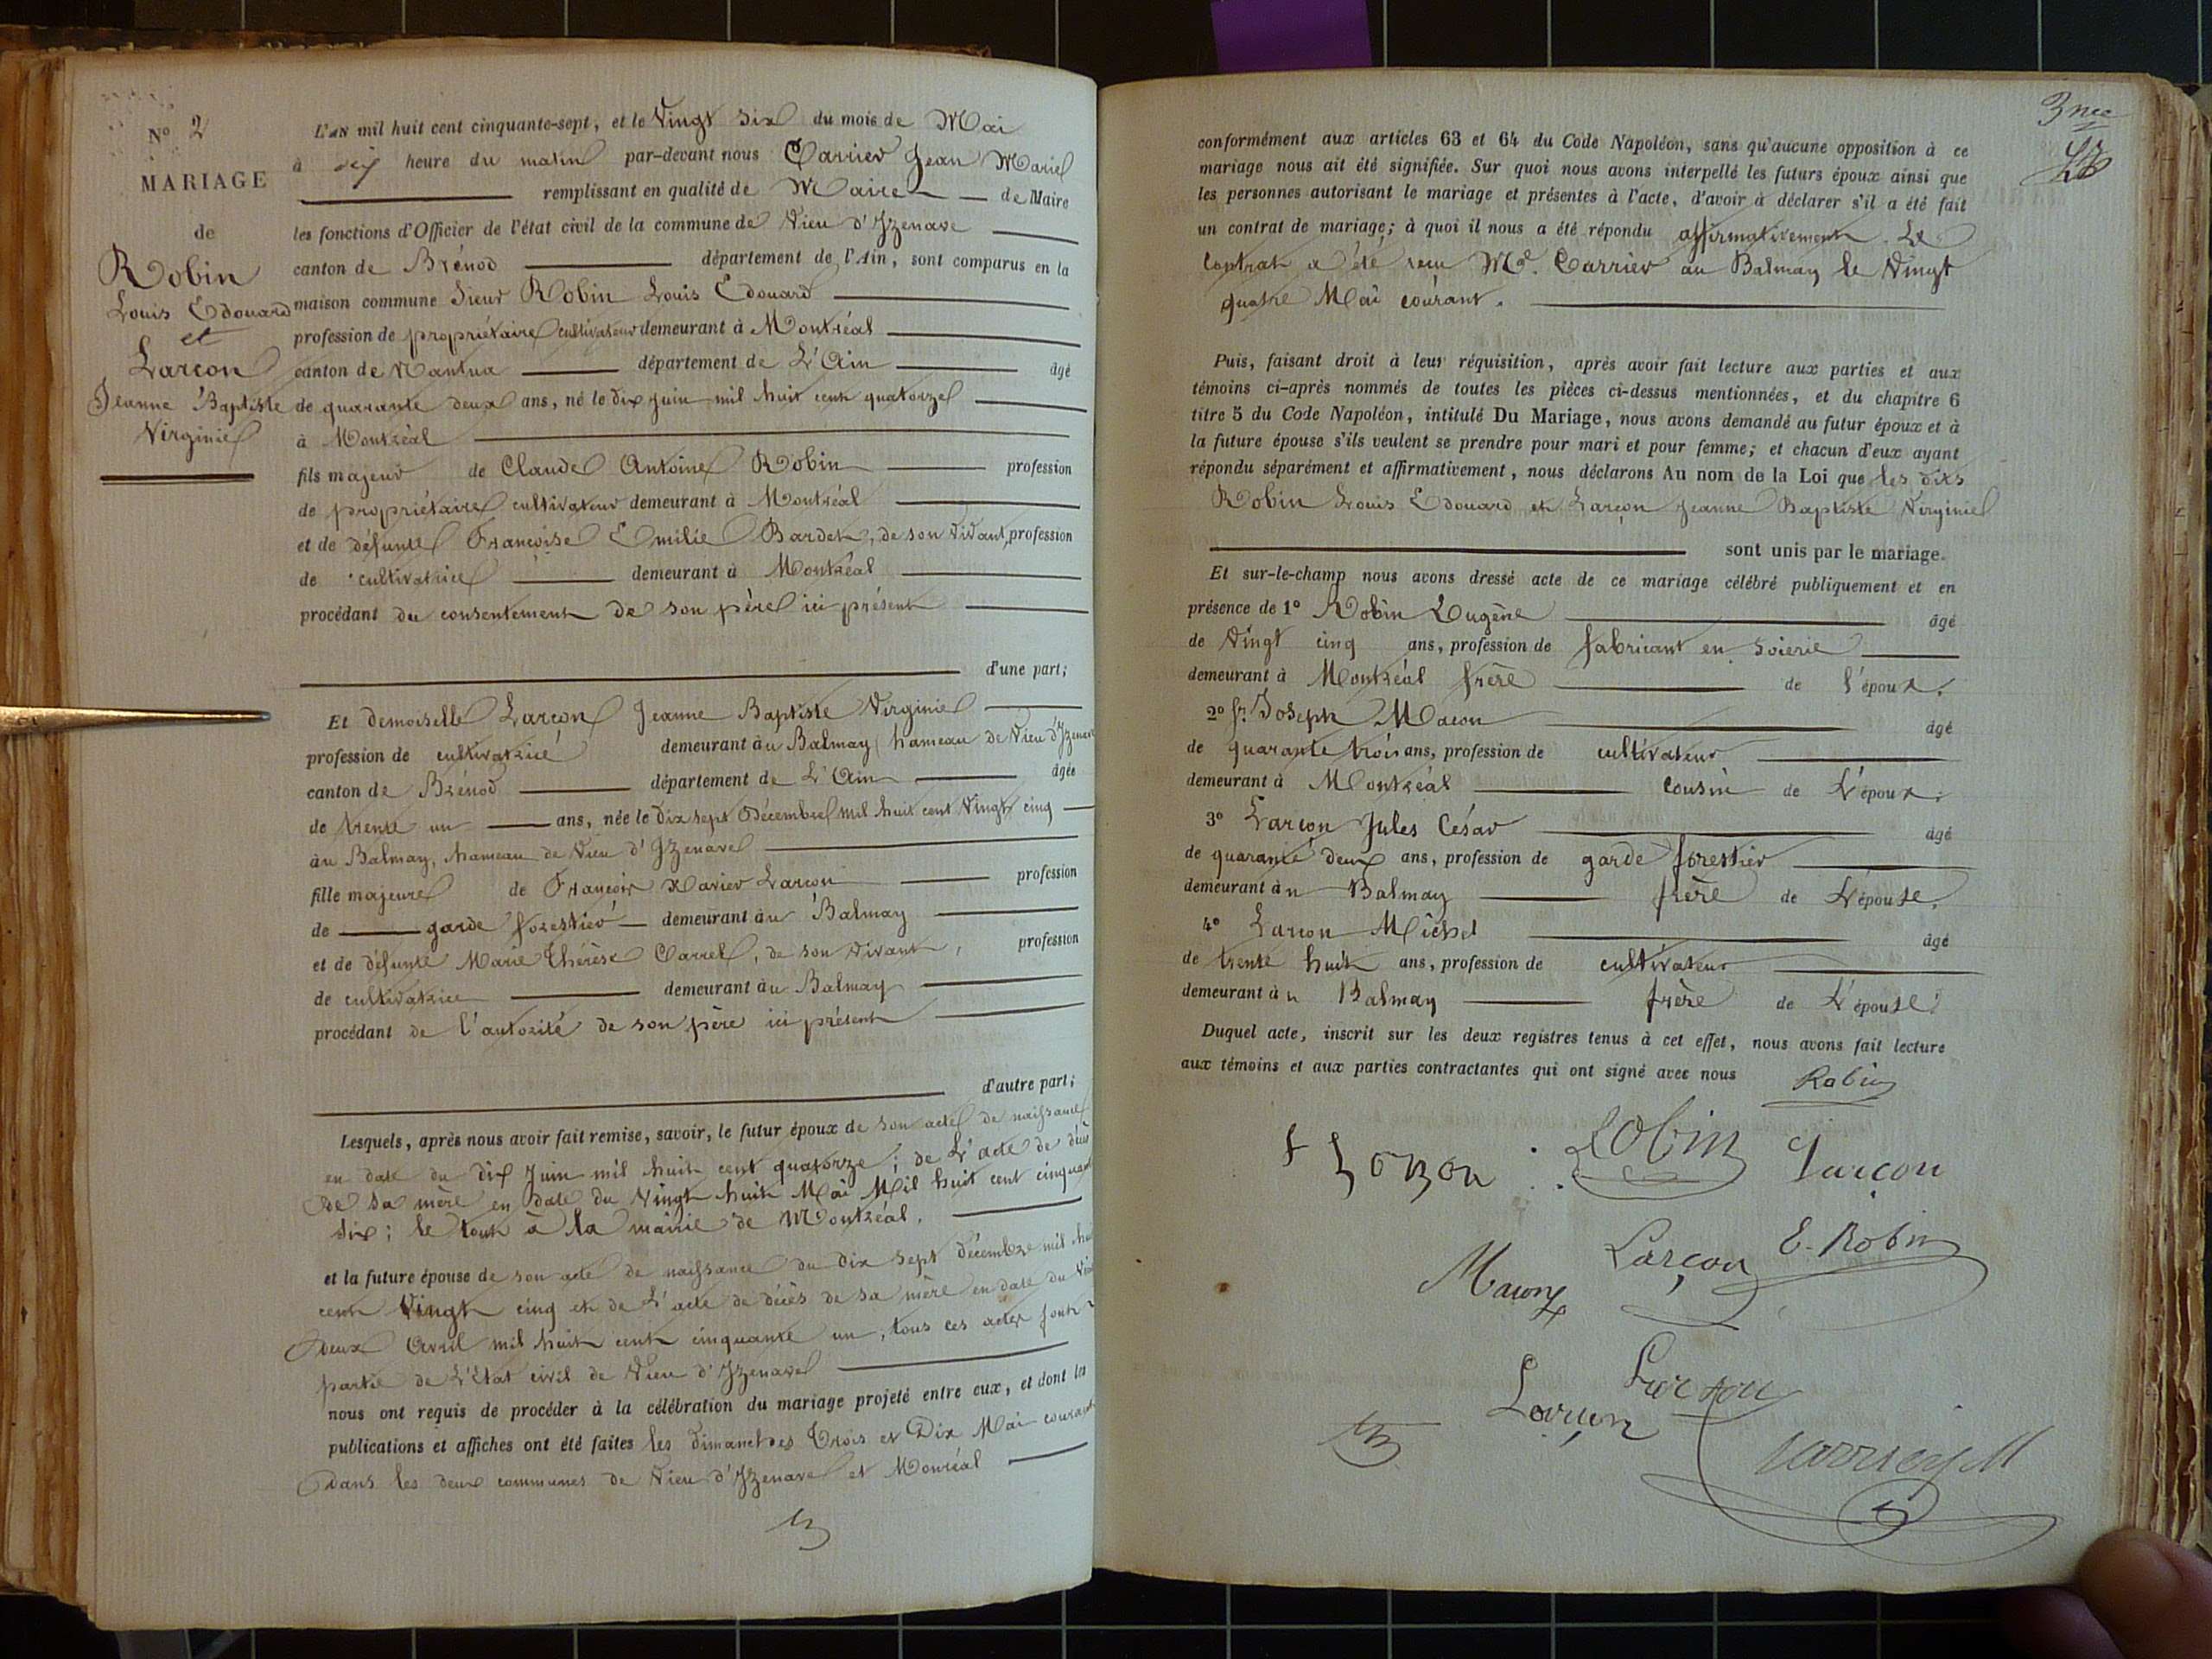 N° 2
MARIAGE
de
Robin
Louis Edouard
et
Larçon
Jeanne Baptiste
Virginie
L'AN mil huit cent cinquante-sept, et le Vingt six du mois de Mai
à dix heure du matin par-devant nous Carrier Jean Marie
remplissant en qualité de Maire de Maire
les fonctions d'Officier de l'état civil de la commune de Vieu d'Izenave
canton de Brénod département de l'Ain, sont comparus en la
maison commune Sieur Robin Louis Edouard
profession de propriétaire cultivateur demeurant à Montréal
canton de Nantua département de L'Ain âgé
de quarante deux ans, né le dix juin mil huit cent quatorze
à Montréal
fils majeur de Claude Antoine Robin profession
de propriétaire cultivateur demeurant à Montréal
et de défunte Françoise Emilie Bardet, de son vivant, profession
de cultivatrice demeurant à Montréal
procédant du consentement de son père ici présent
d'une part;
Et demoiselle Larçon Jeanne Baptiste Virginie
profession de cultivatrice demeurant au Balmay hameau de Vieu d'Izenave
canton de Brénod département de L'Ain âgée
de trente un ans, née le dix sept Décembre mil huit cent vingt cinq
au Balmay, hameau de Vieu d'Izenave
fille majeure de François Xavier Larçon profession
de garde forestier demeurant au Balmay
et de défunte Marie Thérèse Carrel, de son vivant, profession
de cultivatrice demeurant au Balmay
procédant de l'autorité de son père ici présent
d'autre part;
Lesquels, après nous avoir fait remise, savoir, le futur époux de son acte de naissance
en date du dix Juin mil huit cent quatorze; de L'acte de décès
de sa mère en date du Vingt huit Mai Mil huit cent cinquante
six; le tout à la mairie de Montréal.
et la future épouse de son acte de naissance du dix sept décembre mil huit
cent Vingt cinq et de L'acte de décès de sa mère en date du Vingt
deux Avril mil huit cent cinquante un, tous ces actes font
partie de L'Etat civil de Vieu d'Izenave
nous ont requis de procéder à la célébration du mariage projeté entre eux, et dont les
publications et affiches ont été faites les dimanches Trois et Dix Mai courant
Dans les deux communes de Vieu d'Izenave et Monréal
conformément aux articles 63 et 64 du Code Napoléon, sans qu'aucune opposition à ce
mariage nous ait été signifiée. Sur quoi nous avons interpellé les futurs époux ainsi que
les personnes autorisant le mariage et présentes à l'acte, d'avoir à déclarer s'il a été fait
un contrat de mariage; à quoi il nous a été répondu affirmativement. Le
Contrat a été reçu Me. Carrier au Balmay le Vingt
quatre Mai courant.
Puis, faisant droit à leur réquisition, après avoir fait lecture aux parties et aux
témoins ci-après nommés de toutes les pièces ci-dessus mentionnées, et du chapitre 6
titre 5 du Code Napoléon, intitulé Du Mariage, nous avons demandé au futur époux et à
la future épouse s'ils veulent se prendre pour mari et pour femme; et chacun d'eux ayant
répondu séparément et affirmativement, nous déclarons Au nom de la Loi que les dits
Robin Louis Edouard et Larçon Jeanne Baptiste Virginie
sont unis par le mariage.
Et sur-le-champ nous avons dressé acte de ce mariage célébré publiquement et en
présence de 1° Robin Eugène âgé
de Vingt cinq ans, profession de fabricant en soierie
demeurant à Montréal frère de l'époux.
2° fr. Joseph Macon âgé
de quarante trois ans, profession de cultivateur
demeurant à Montréal Cousin de L'époux.
3° Larçon Jules César âgé
de quarante deux ans, profession de garde forestier
demeurant au Balmay frère de L'épouse.
4° Larçon Michel âgé
de trente huit ans, profession de cultivateur
demeurant au Balmay frère de L'épouse.
Duquel acte, inscrit sur les deux registres tenus à cet effet, nous avons fait lecture
aux témoins et aux parties contractantes qui ont signé avec nous Robin
Robin Larçon
Larçon E. Robin
Macon
Larçon
Larçon
Carrier J M